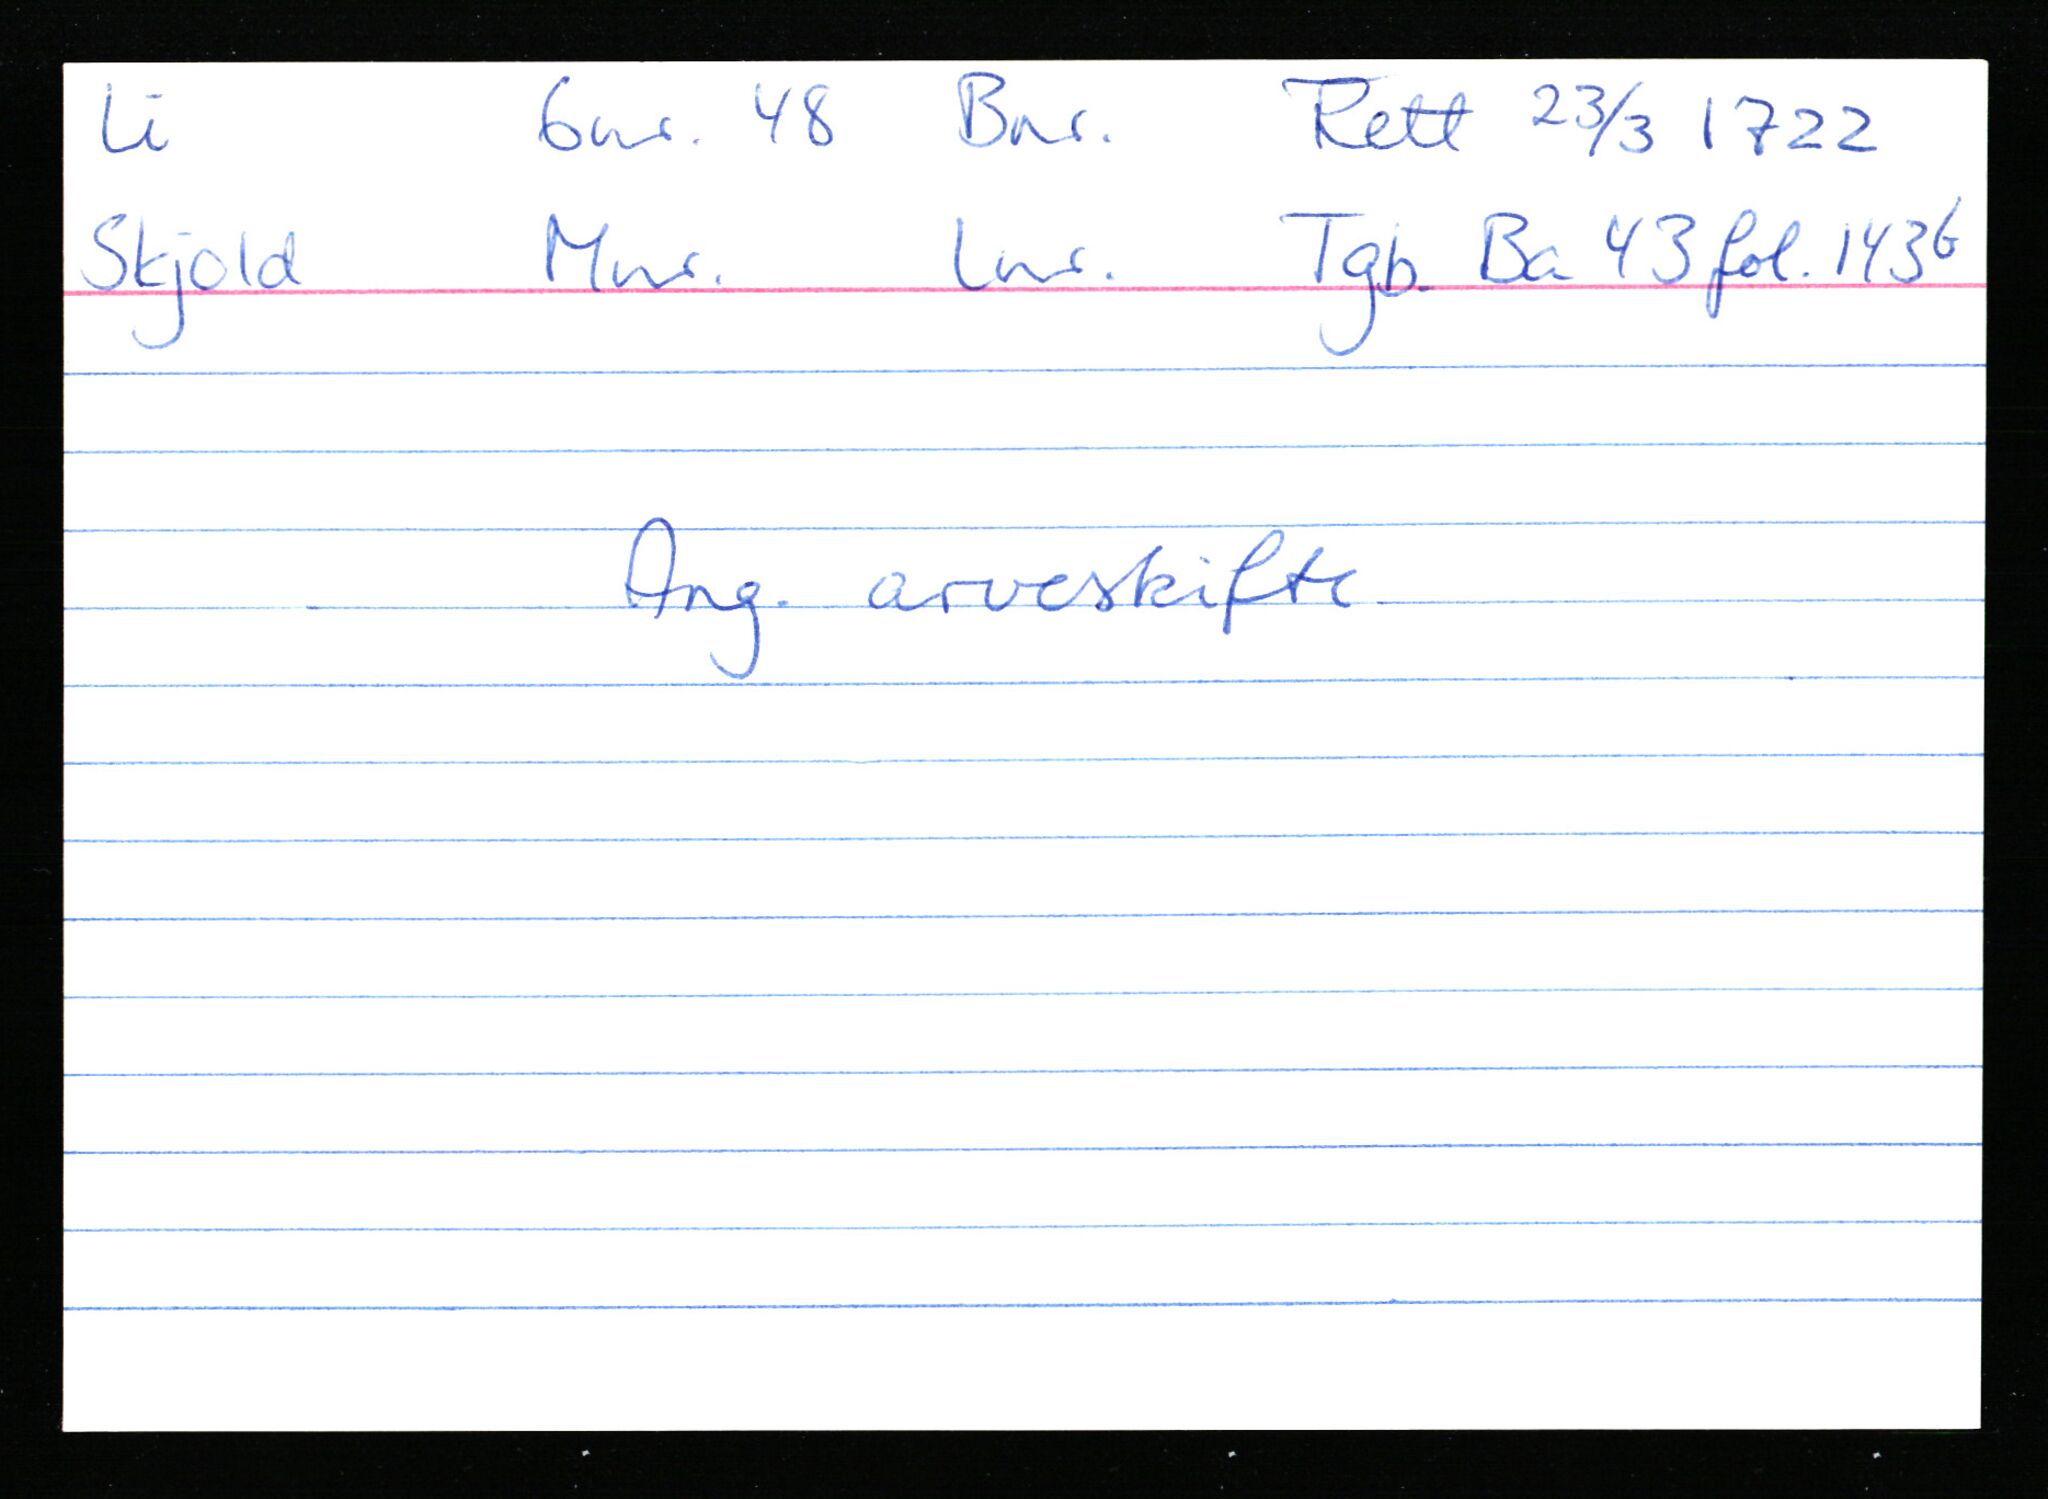 Li Gnr. 48 Bnr. Rett 23/3 1722
Skjold Mnr. Lnr. Tgb. Ba 43 fol. 143b
Ang. arveskifte